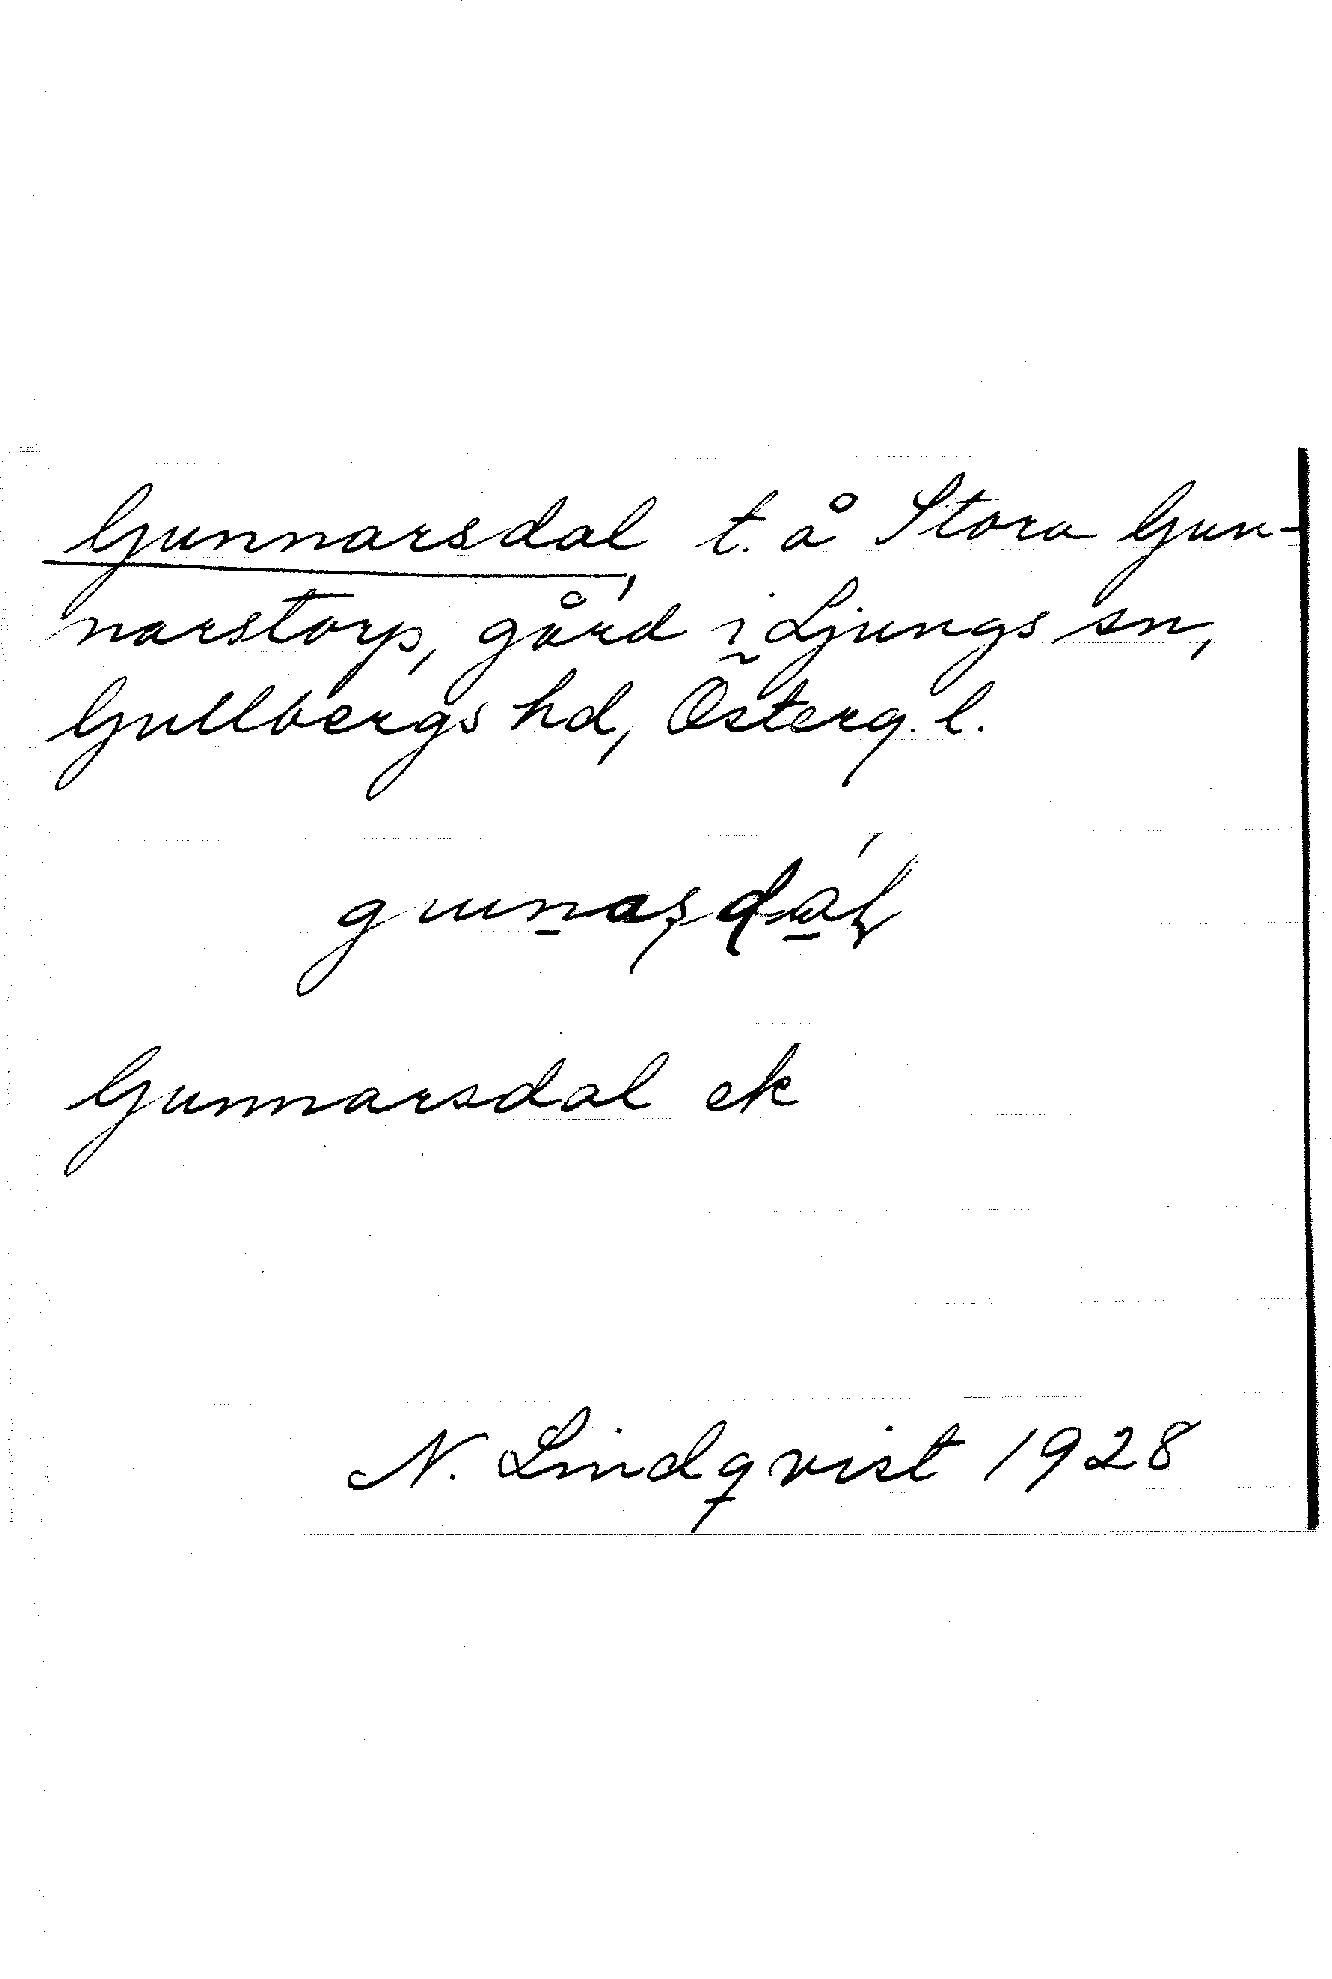 Gunnarsdal, t. å Stora Gun-
narstorp, gård i Ljungs sn,
Gullbergs hd, Österg. l.
Gunnarsdal ek
N. Lindqvist 1928